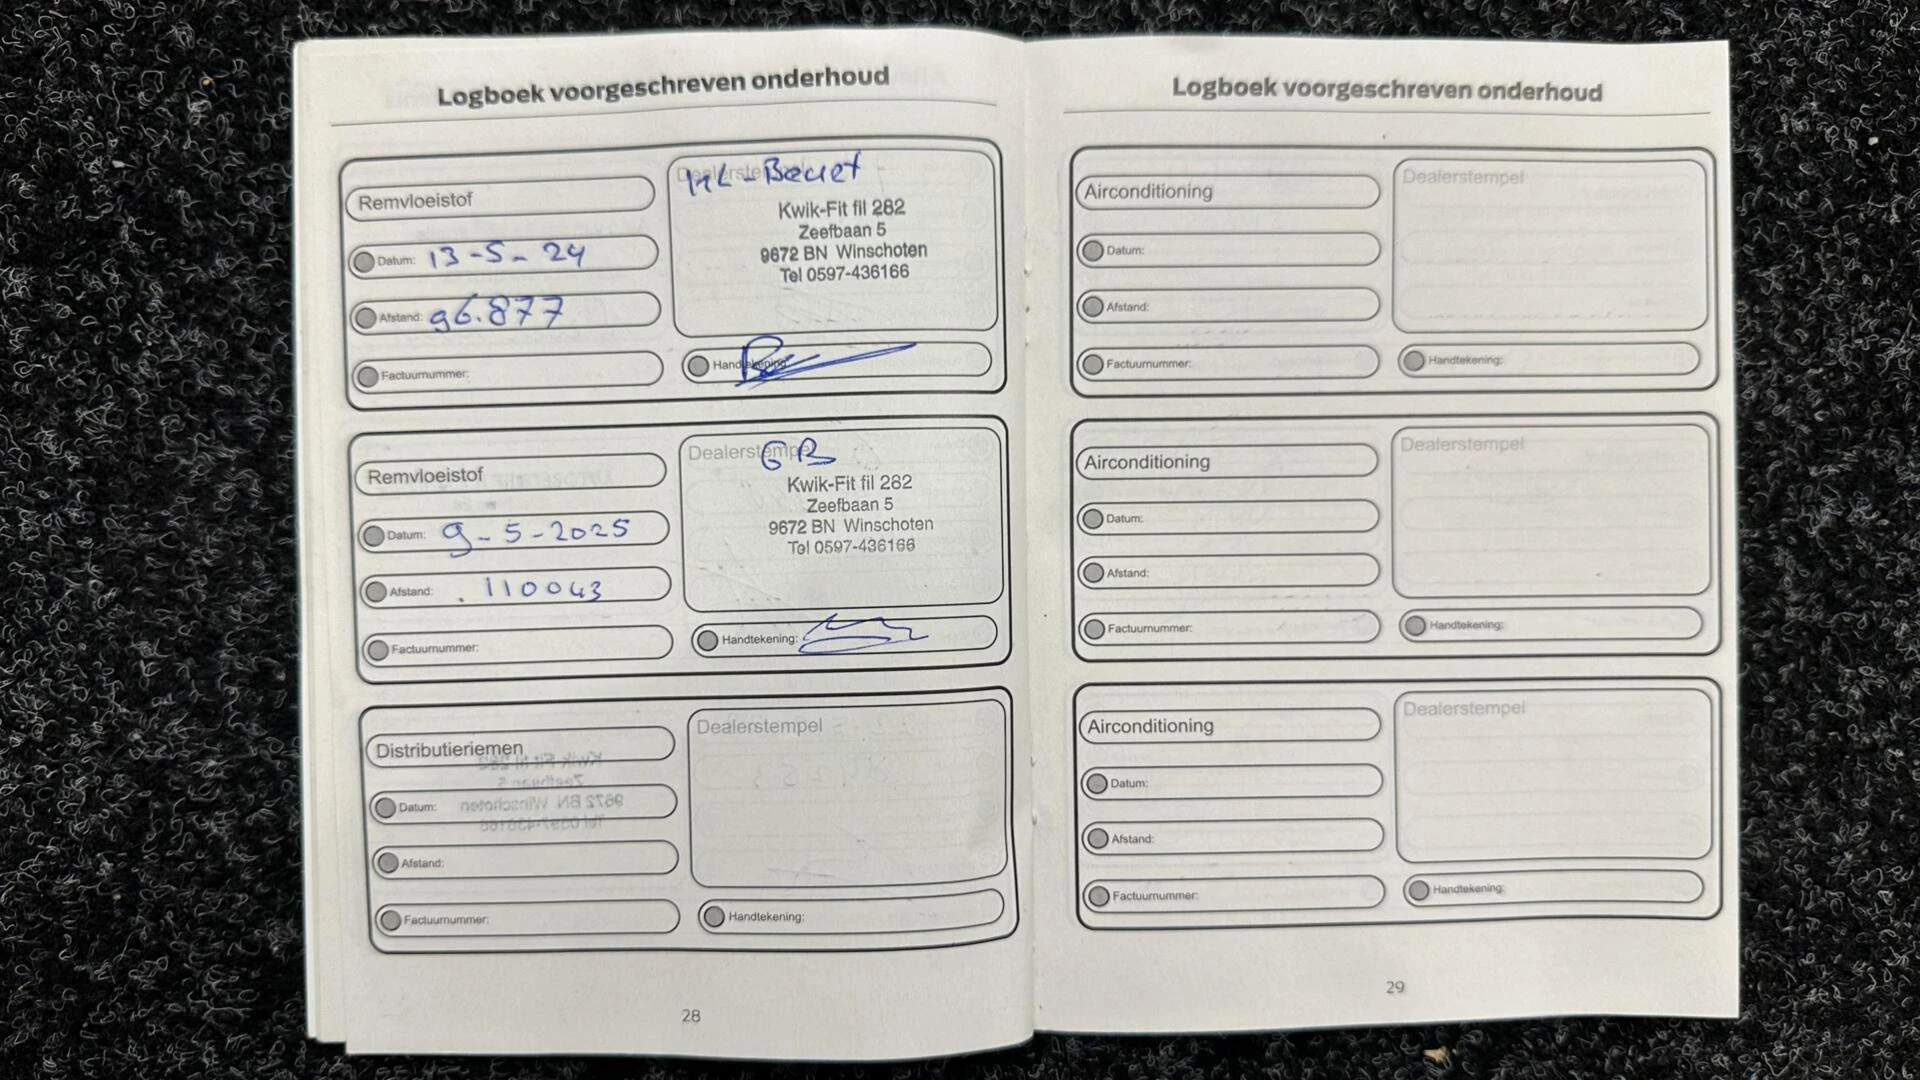 Logboek voorgeschreven onderhoud
Remvloeistof
Datum: 13-5-24
Afstand: 96.877
Factuurnummer:
Dealerstempel
Kwik-Fit fil 282
Zeefbaan 5
9672 BN Winschoten
Tel 0597-436166
Handtekening:
Remvloeistof
Datum: 9-5-2025
Afstand: 110043
Factuurnummer:
Dealerstempel
GB
Kwik-Fit fil 282
Zeefbaan 5
9672 BN Winschoten
Tel 0597-436166
Handtekening:
Distributieriemen
Datum:
Afstand:
Factuurnummer:
Dealerstempel
Handtekening:
28
Logboek voorgeschreven onderhoud
Airconditioning
Datum:
Afstand:
Factuurnummer:
Dealerstempel
Handtekening:
Airconditioning
Datum:
Afstand:
Factuurnummer:
Dealerstempel
Handtekening:
Airconditioning
Datum:
Afstand:
Factuurnummer:
Dealerstempel
Handtekening:
29